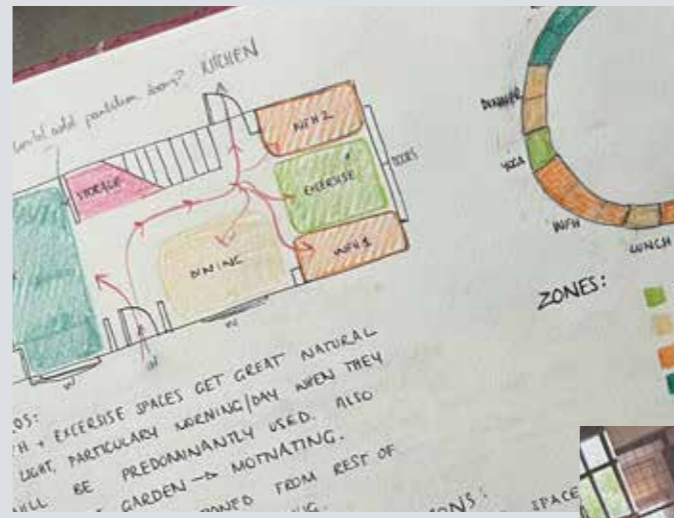 could add partition doors? KITCHEN
WFH 2
STORAGE
EXCERSISE
DOORS
DINING
WFH 1
W
IN
W
DINNER
YOGA
WFH
LUNCH
ZONES:
OS:
H + EXCERSISE SPACES GET GREAT NATURAL
LIGHT, PARTICULARY MORNING/DAY WHEN THEY
ILL BE PREDOMINANTLY USED. ALSO
GARDEN → MOTIVATING.
ONED FROM REST OF
ONS:
SPACE